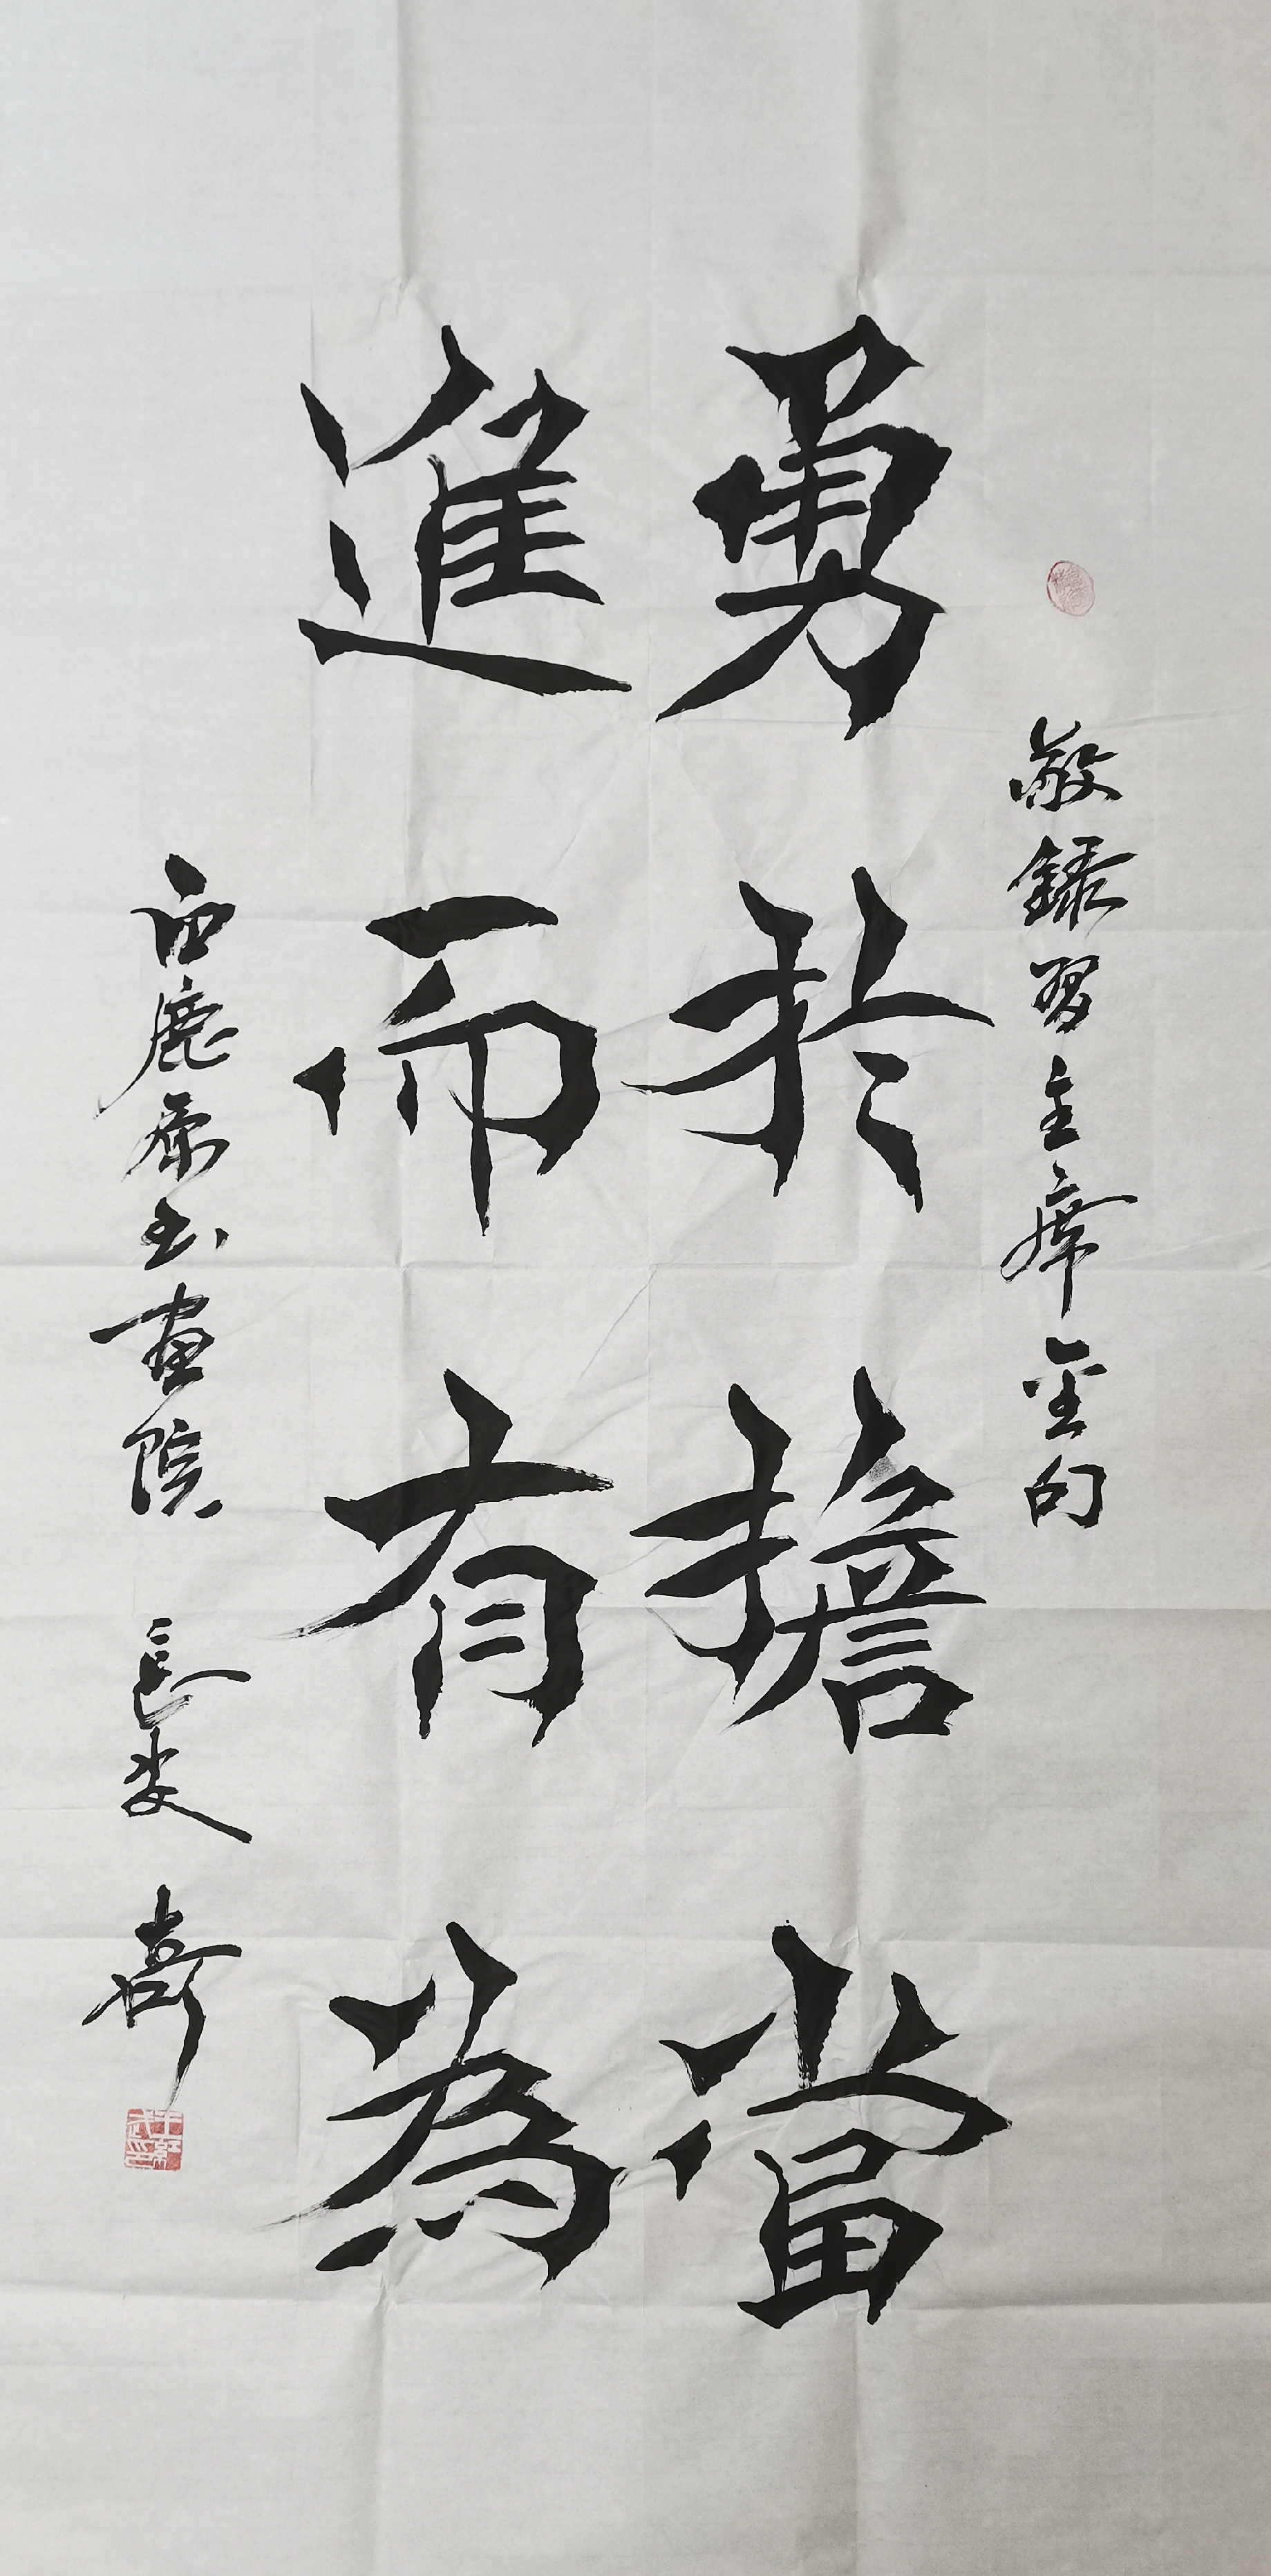 敬錄習主席金句
勇於擔當
進而有為
白鹿原书畫院 長安 奇